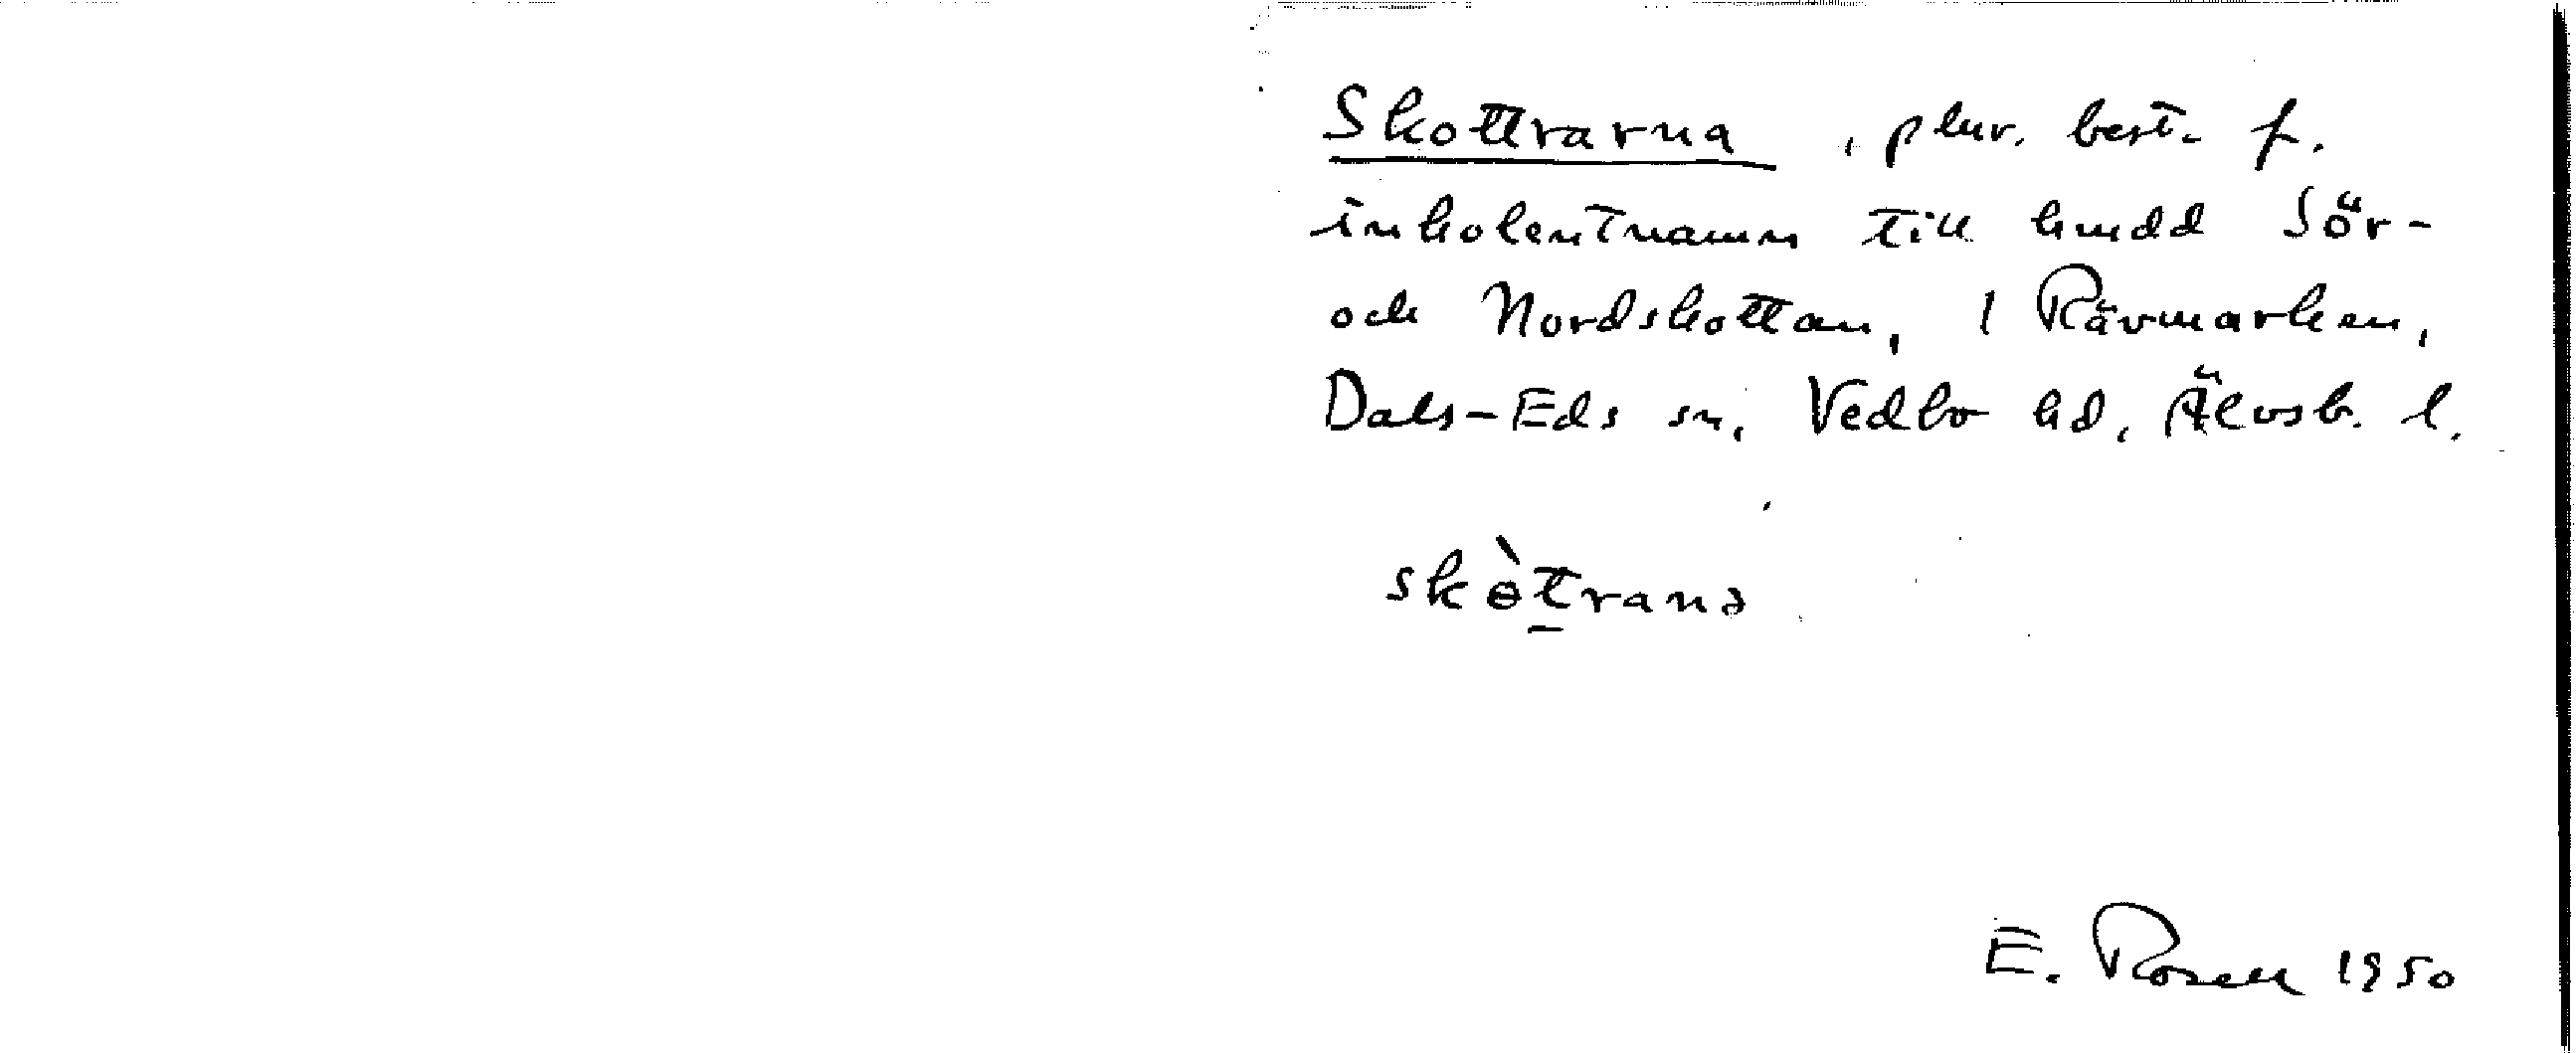 Skottrarna, plur. best. f.
inkolentnamn till hmdd Sör-
och Nordskottan, i Rävmarken,
Dals-Eds sn, Vedbo hd, Älvsb. l.
skɵ̀tranə
E. Rosell 1950